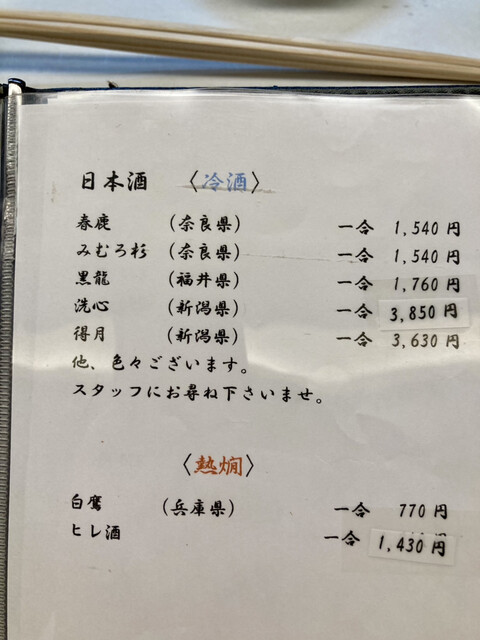 日本酒 〈冷酒〉
春鹿 (奈良県) 一合 1,540 円
みむろ杉 (奈良県) 一合 1,540 円
黒龍 (福井県) 一合 1,760 円
洗心 (新潟県) 一合 3,850 円
得月 (新潟県) 一合 3,630 円
他、色々ございます。
スタッフにお尋ね下さいませ。
〈熱燗〉
白鷹 (兵庫県) 一合 770 円
ヒレ酒 一合 1,430 円